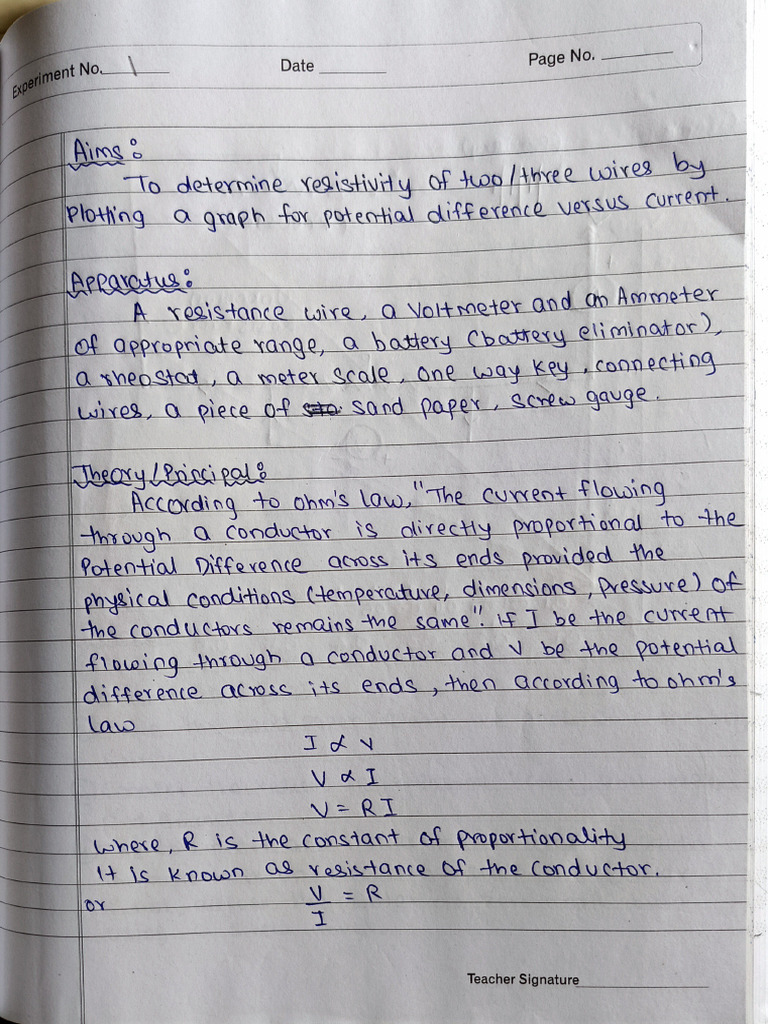 Experiment No. 1 Date Page No.
Aims:
To determine resistivity of two/three wires by
Plotting a graph for potential difference versus current.
Apparatus:
A resistance wire, a Voltmeter and an Ammeter
of appropriate range, a battery (battery eliminator),
a rheostat, a meter scale, one way key, connecting
wires, a piece of sand paper, screw gauge.
Theory/Principal:
According to ohm's law, "The current flowing
through a conductor is directly proportional to the
Potential Difference across its ends provided the
physical conditions (temperature, dimensions, pressure) of
the conductors remains the same". if I be the current
flowing through a conductor and V be the potential
difference across its ends, then according to ohm's
law
I ∝ V
V ∝ I
V = RI
where, R is the constant of proportionality
It is known as resistance of the conductor.
or V/I = R
Teacher Signature